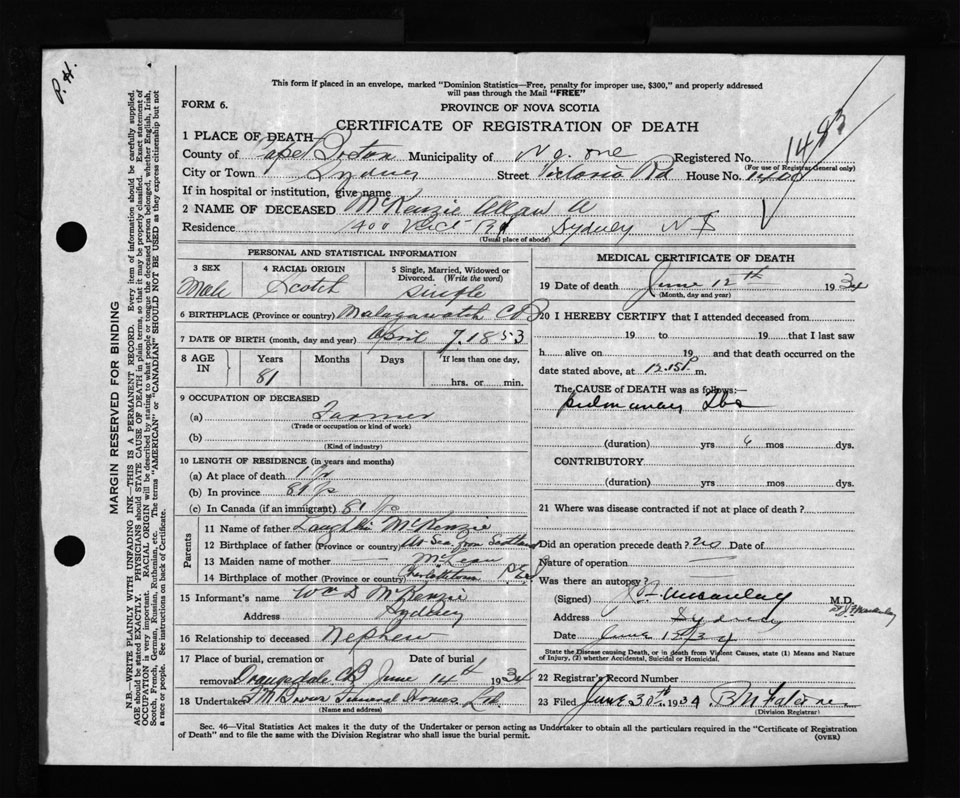 P. H.
This form if placed in an envelope, marked "Dominion Statistics—Free, penalty for improper use, $300," and properly addressed
will pass through the Mail "FREE"
FORM 6.
PROVINCE OF NOVA SCOTIA
CERTIFICATE OF REGISTRATION OF DEATH
1483
1 PLACE OF DEATH—
County of Cape Breton Municipality of No. one Registered No.
(For use of Registrar General only)
City or Town Sydney Street Victoria Rd House No. 1400
If in hospital or institution, give name
2 NAME OF DECEASED McKenzie Allan A
Residence 1400 Vict Rd Sydney N S
(Usual place of abode)
PERSONAL AND STATISTICAL INFORMATION
3 SEX Male
4 RACIAL ORIGIN Scotch
5 Single, Married, Widowed or Divorced. (Write the word) single
6 BIRTHPLACE (Province or country) Malagawatch C B
7 DATE OF BIRTH (month, day and year) April 7. 1853
8 AGE IN Years 81 Months Days If less than one day, hrs. or min.
9 OCCUPATION OF DECEASED
(a) Farmer
(Trade or occupation or kind of work)
(b)
(Kind of industry)
10 LENGTH OF RESIDENCE (in years and months)
(a) At place of death 1 yr
(b) In province 81 yrs
(c) In Canada (if an immigrant) 81 yrs
Parents
11 Name of father Laughlin McKenzie
12 Birthplace of father (Province or country) At Sea from Scotland
13 Maiden name of mother McLean
14 Birthplace of mother (Province or country) Charlottetown P.E.I
15 Informant's name Wm D McKenzie
Address Sydney
16 Relationship to deceased Nephew
17 Place of burial, cremation or removal Orangedale CB Date of burial June 14th 1934
18 Undertaker Funeral Homes Ltd.
(Name and address)
MEDICAL CERTIFICATE OF DEATH
19 Date of death June 12th 1934
(Month, day and year)
20 I HEREBY CERTIFY that I attended deceased from
19 to 19 that I last saw
h alive on 19 and that death occurred on the
date stated above, at 12.15 P. m.
The CAUSE OF DEATH was as follows:—
pulmonary Tbs
(duration) yrs 6 mos dys.
CONTRIBUTORY
(duration) yrs mos dys.
21 Where was disease contracted if not at place of death?
Did an operation precede death? no Date of
Nature of operation
Was there an autopsy?
(Signed) Macaulay M.D.
Address Sydney
Date June 1934
State the Disease causing Death, or in death from Violent Causes, state (1) Means and Nature of Injury, (2) whether Accidental, Suicidal or Homicidal.
22 Registrar's Record Number
23 Filed June 30th 1934
(Division Registrar)
Sec. 46—Vital Statistics Act makes it the duty of the Undertaker or person acting as Undertaker to obtain all the particulars required in the "Certificate of Registration
of Death" and to file the same with the Division Registrar who shall issue the burial permit.
(OVER)
MARGIN RESERVED FOR BINDING
N.B.—WRITE PLAINLY WITH UNFADING INK—THIS IS A PERMANENT RECORD. Every item of information should be carefully supplied.
AGE should be stated EXACTLY. PHYSICIANS should STATE CAUSE OF DEATH in plain terms, so that it may be properly classified. Exact statement of
OCCUPATION is very important. RACIAL ORIGIN will be described by stating to what people or tongue the deceased person belonged, whether English, Irish,
Scotch, French, German, Russian, Ruthenian, etc. The terms "AMERICAN" or "CANADIAN" SHOULD NOT BE USED as they express citizenship but not
a race or people. See instructions on back of Certificate.